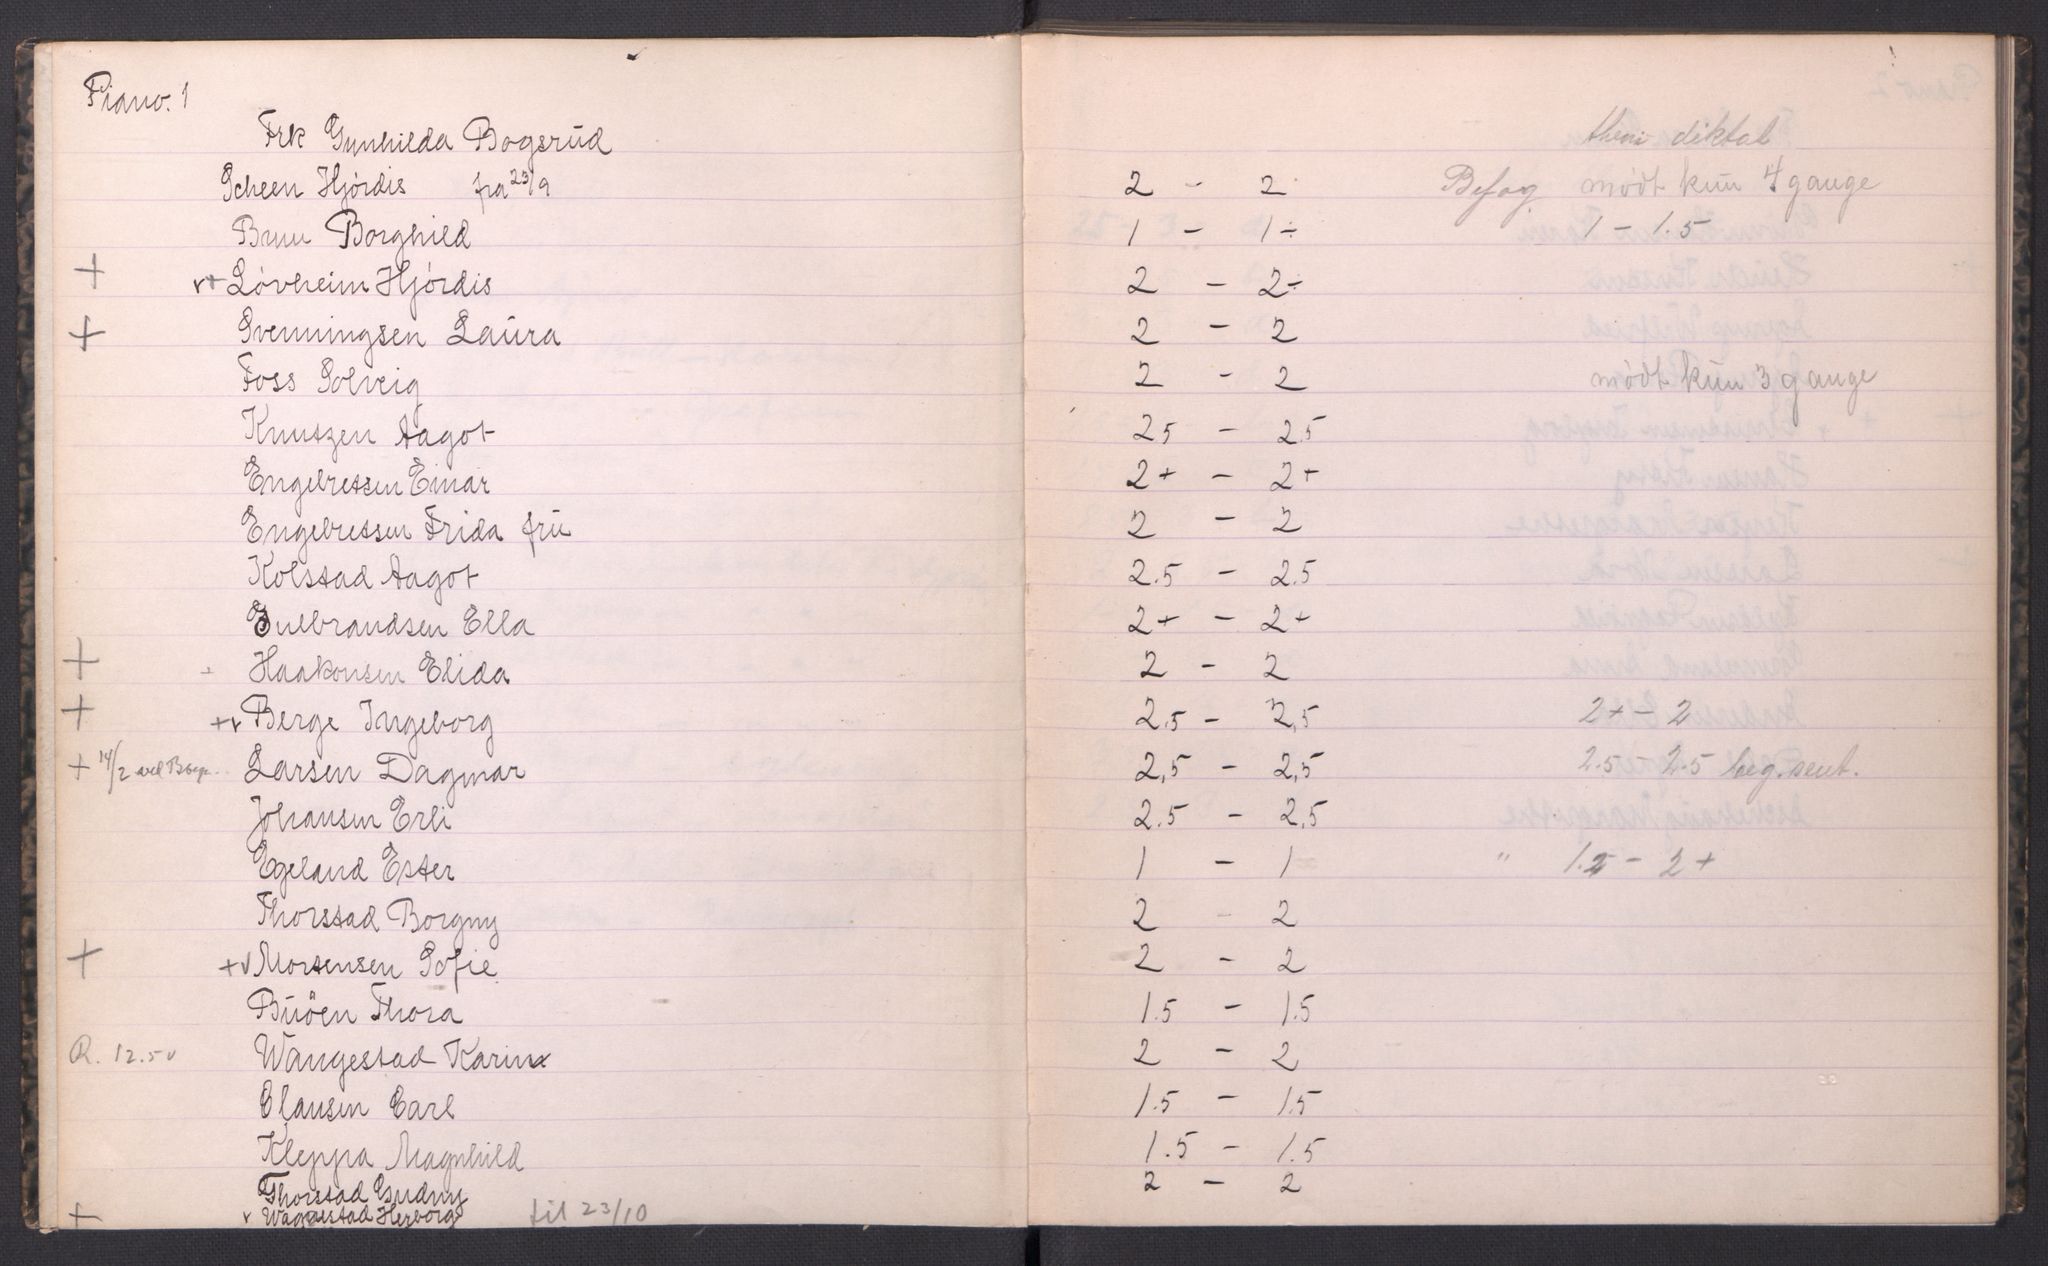 Piano. 1
Frk Gunhilda Bogsrud
theori diktat
Scheen Hjördis fra 23/9 2 - 2 Befag mødt kun 4 gange
Bruu Borghild 1 - 1÷ 1 - 1.5
+ v+ Lövheim Hjördis 2 - 2÷
+ Svenningsen Laura 2 - 2
Foss Solveig 2 - 2 mødt kun 3 gange
Knutzen Aagot 2 5 - 2 5
Engebretsen Einar 2+ - 2+
Engebretsen Frida fru 2 - 2
Kolstad Aagot 2.5 - 2.5
Gulbrandsen Ella 2+ - 2+
+ Haakonsen Elida 2 - 2
+ +v Berge Ingeborg 2.5 - 2,5 2+ - 2
+ 14/2 Larsen Dagmar 2,5 - 2,5 2.5 - 2.5 beg. sent.
Johansen Erli 2.5 - 2,5
Egeland Ester 1 - 1 " 1.5 - 2+
Thorstad Borgny 2 - 2
+ +v Mortensen Sofie 2 - 2
Buöen Thora 1.5 - 1.5
R. 12.50 Wangestad Karin 2 - 2
Clausen Carl 1.5 - 1.5
Kleppa Magnhild 1.5 - 1.5
Thorstad Gudny 2 - 2
+ v Wangestad Herborg til 23/10